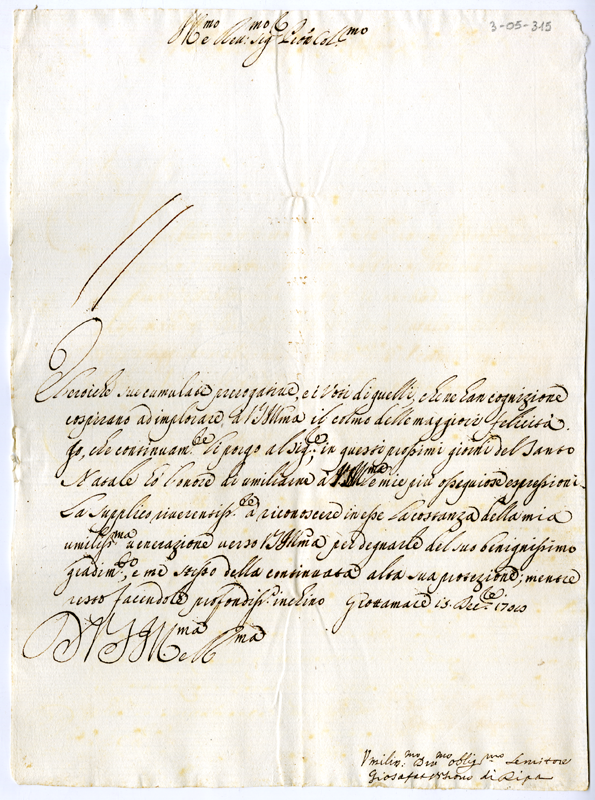 3-05-315
Ill.mo e Rev.mo Sig.re P'ron Col.mo
L'eroiche sue cumulate prerogative, e i voti di quelli, che ne han cognizione
cospirano ad implorare à V.S. Ill.ma il colmo delle maggiori felicità.
Io, che continuam.te li porgo al Sig.re, in questi prossimi giorni del Santo
Natale hò l'onore di umiliarne à V.S. Ill.ma le mie più ossequiose espressioni.
La supplico riverentiss.te à riconoscere in esse la costanza della mia
umiliss.ma venerazione verso V.S. Ill.ma per degnarle del suo benignissimo
gradim.to, e me stesso della continuata alta sua protezione; mentre
resto facendole profondiss.o inchino Grottamare 15. Dec.re
D V S Ill.ma e R.ma
Umilis.mo Div.mo oblig.mo Servitore
Giosafat di Ripa